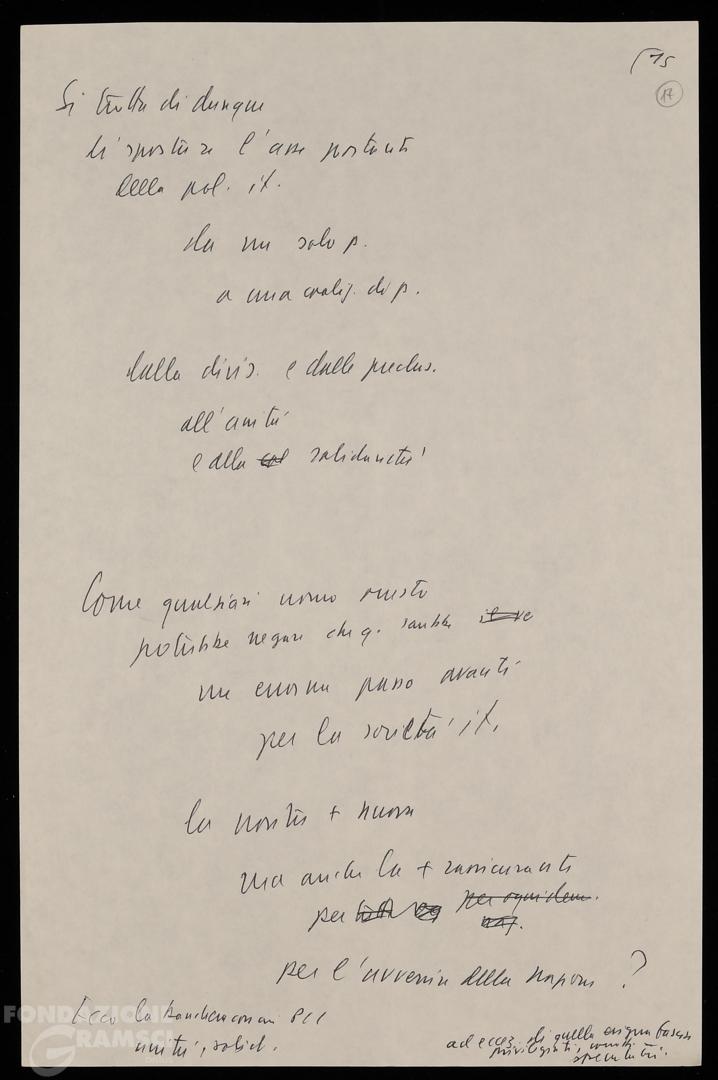 15
17
Si tratta di dunque
di spostare l'asse portante
della pol. it.
da un solo p.
a una coaliz. di p.
dalla divis. e dalle preclus.
all'unità
e alla solidarietà
Come qualsiasi uomo onesto
potrebbe negare che q. sarebbe
un enorme passo avanti
per la società it.
la novità + nuova
ma anche la + rassicurante
per per ogni dem.
per l'avvenire della nazione ?
Ecco la bandiera con cui PCI
unità, solid.
ad eccez. di quella esigua fascia
privilegiati,
speculatori.
FONDAZIONE
GRAMSCI